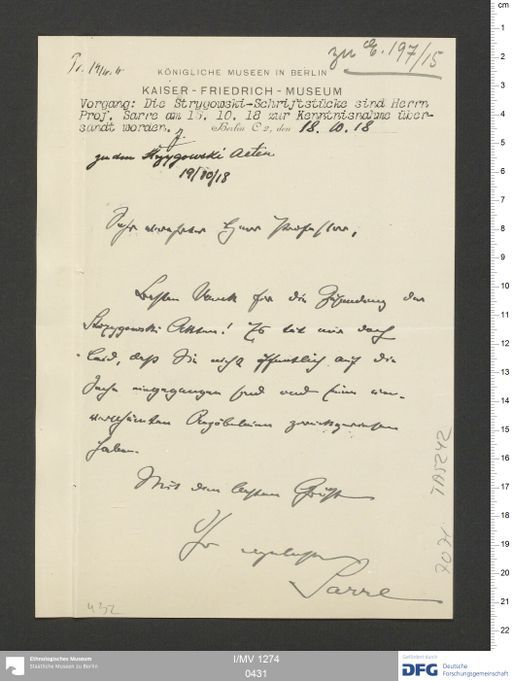 zu E. 197/15
KÖNIGLICHE MUSEEN IN BERLIN
KAISER-FRIEDRICH-MUSEUM
Vorgang: Die Strygowski-Schriftstücke sind Herrn
Prof. Sarre am 15. 10. 18 zur Kenntnisnahme über-
sandt worden.
Berlin C 2, den 18. 10. 18
zu den Strzygowski Acten
19/10/18
Sehr verehrter Herr Professor,
Besten Dank für die Zusendung der
Strzygowski Akten! Es tut mir doch
leid, daß Sie nicht öffentlich auf die
Sache eingegangen sind und seine un-
verschämten zurückgewiesen
haben.
Mit den besten Grüßen
Ihr ergebenster
Sarre
7071
TA5242
432
cm
1
2
3
4
5
6
7
8
9
10
11
12
13
14
15
16
17
18
19
20
21
22
Ethnologisches Museum
Staatliche Museen zu Berlin
I/MV 1274
0431
Gefördert durch
DFG Deutsche
Forschungsgemeinschaft